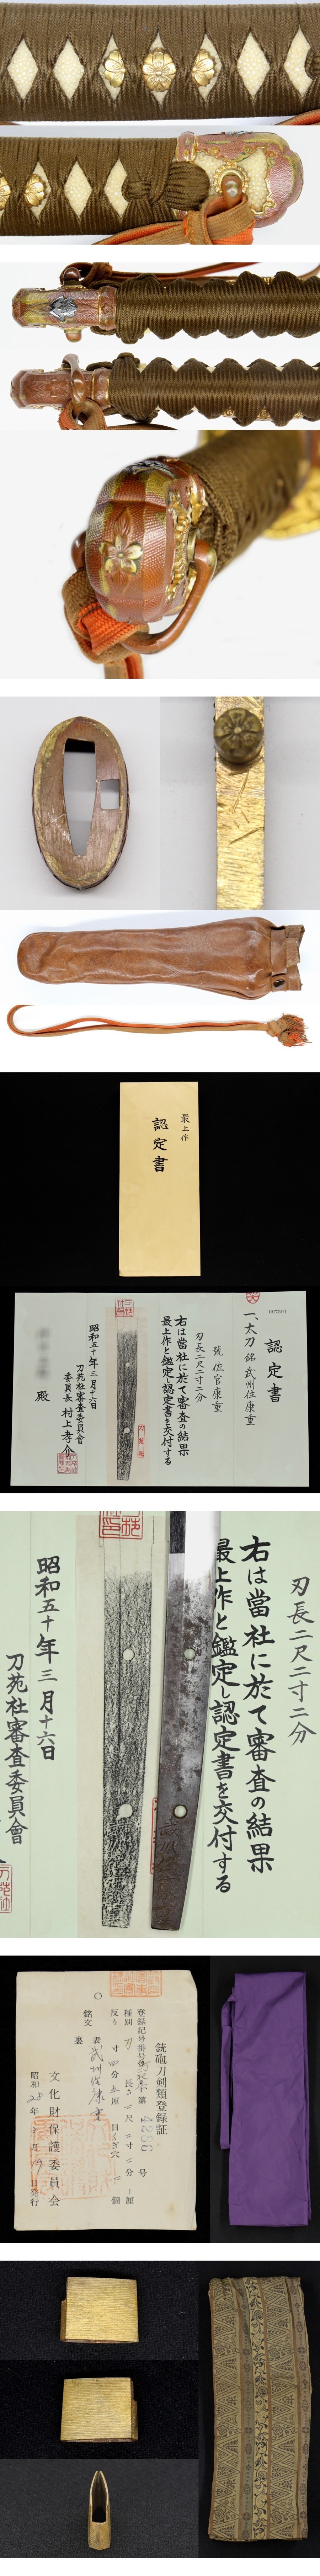 最上作
認定書
認定書
一、太刀 銘 武州住康重
號 佐宮康重
刃長二尺二寸二分
右は當社に於て審査の結果
最上作と鑑定し認定書を交付する
昭和五十年三月十六日
刀苑社審査委員會
委員長 村上孝介
殿
刃長二尺二寸二分
右は當社に於て審査の結果
最上作と鑑定し認定書を交付する
昭和五十年三月十六日
刀苑社審査委員會
銃砲刀剣類登録証
登録記号番号 第 4286 号
種別 刀 長さ 二尺二寸二分 厘
反り 寸 四分 厘 目くぎ穴 二 個
銘文 表 武州住康重
裏
昭和28年 月 日発行
文化財保護委員会